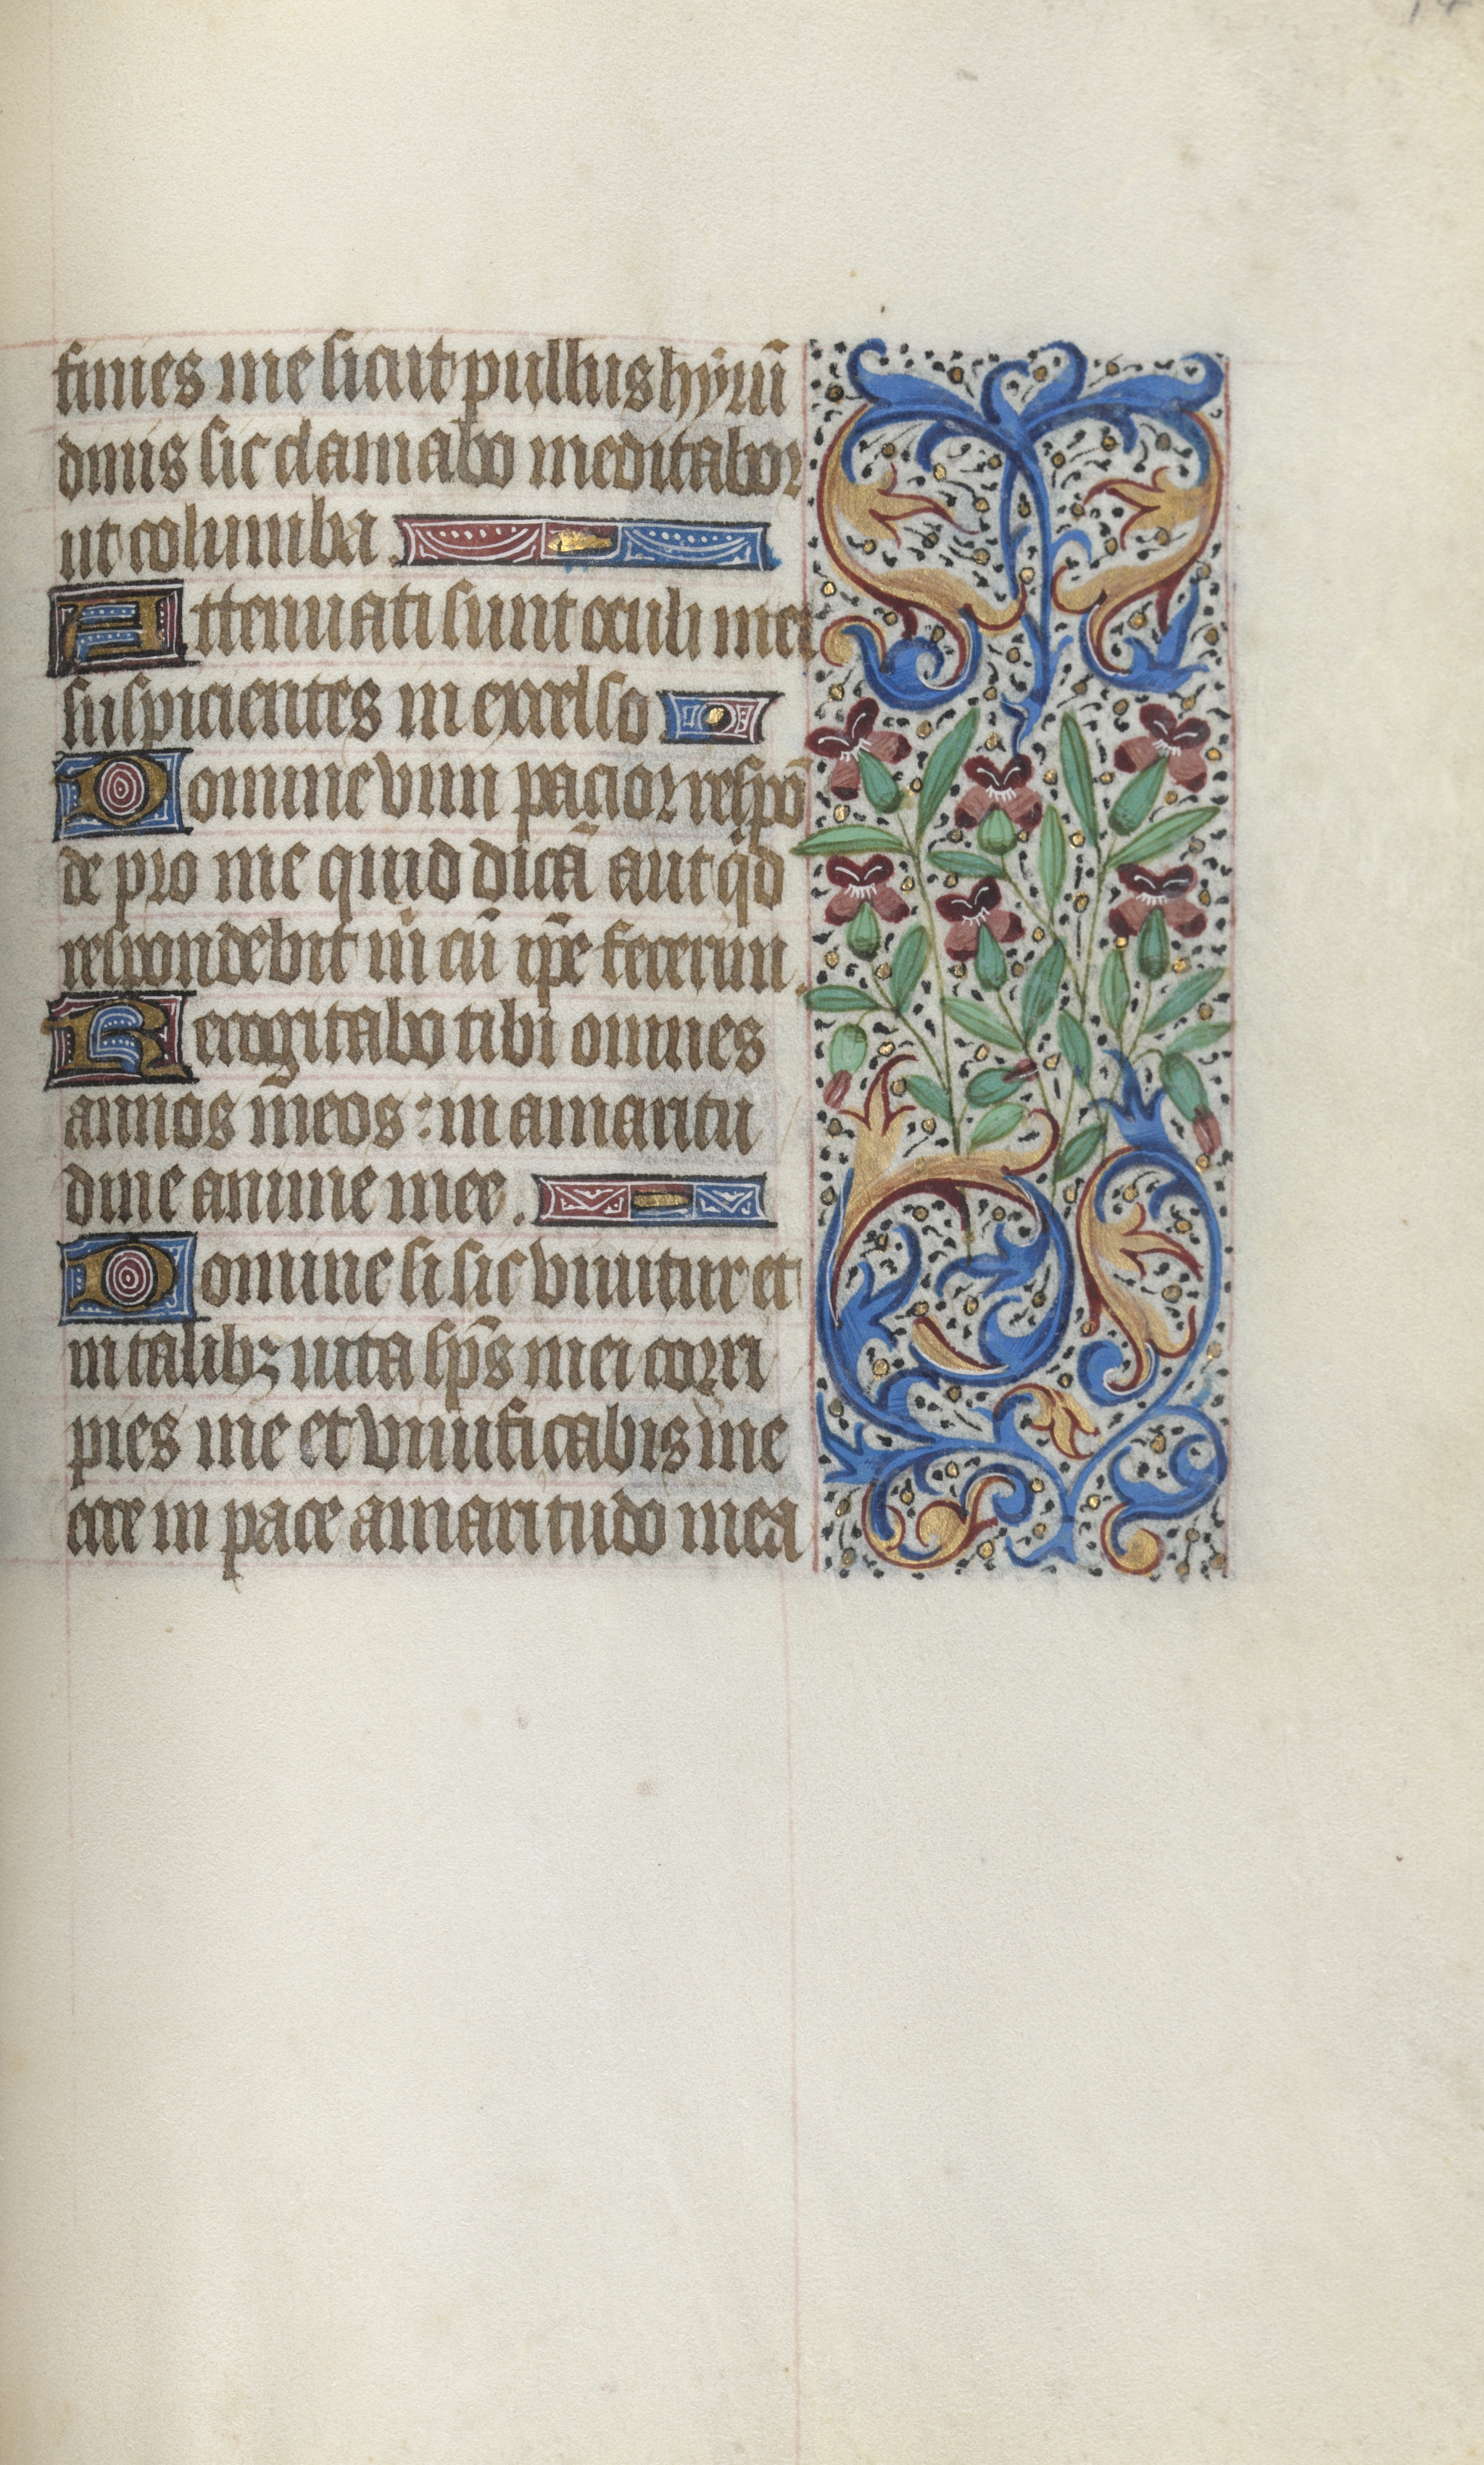 finies me sicut pullus hyrū
dinis sic clamabo meditabor
ut columba.
Attenuati sunt oculi mei
suspicientes in excelso.
Domine vim pacior respō
de pro me quid dicā aut qid
respondebit m̄ cū ip̄e fecerim.
Recogitabo tibi omnes
annos meos : in amaritu
dine anime mee.
Domine si sic vivitur et
in talibꝫ vita sp̄s mei corri
pies me et vivificabis me
ecce in pace amaritudo mea